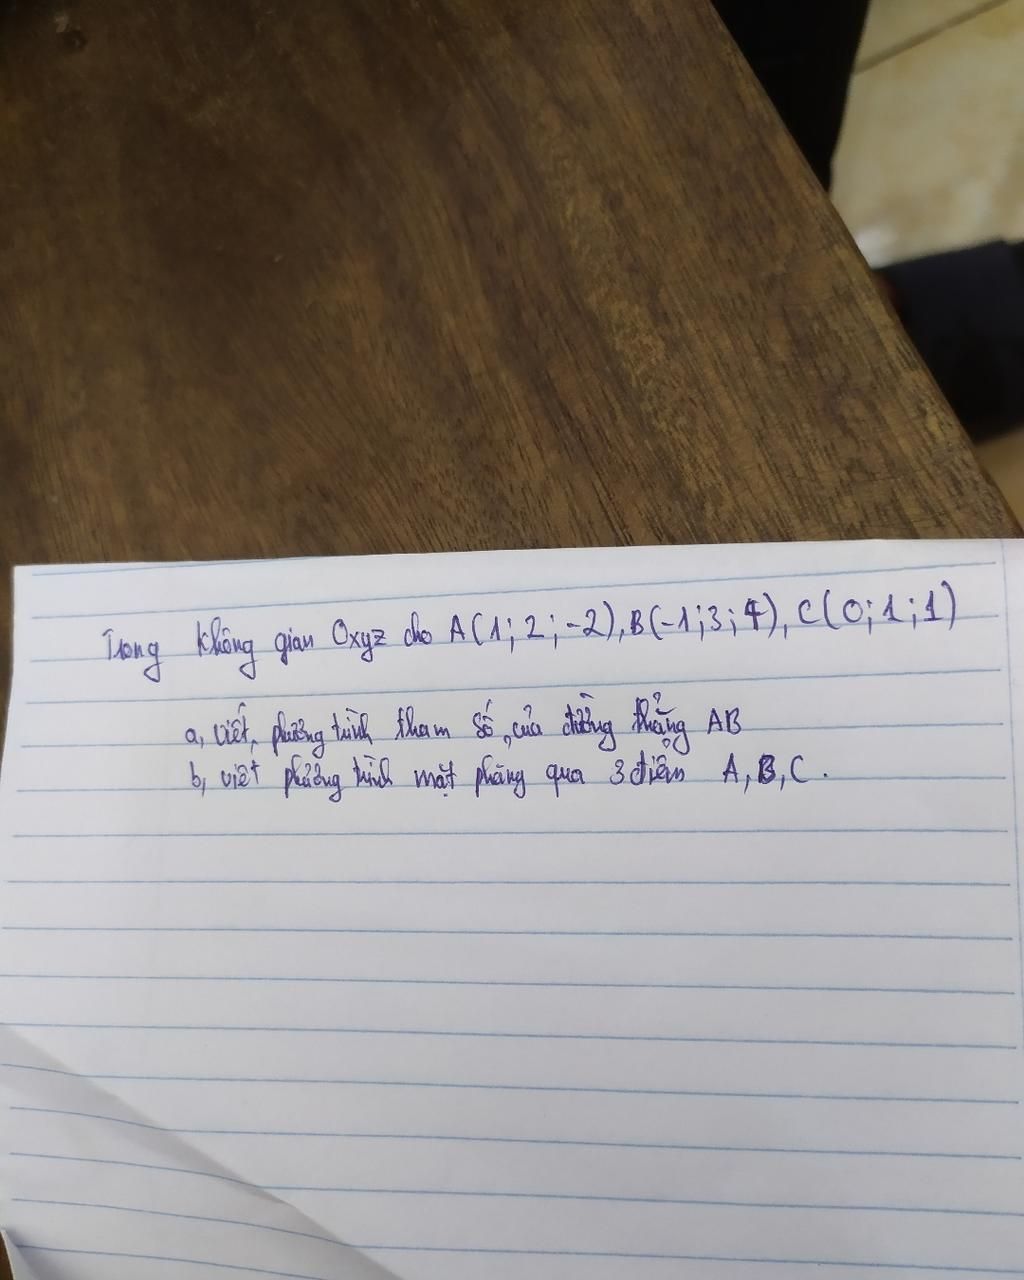 Trong không gian Oxyz cho A(1; 2; -2), B(-1; 3; 4), C(0; 1; 1)
a, viết phương trình tham số của đường thẳng AB
b, viết phương trình mặt phẳng qua 3 điểm A, B, C.